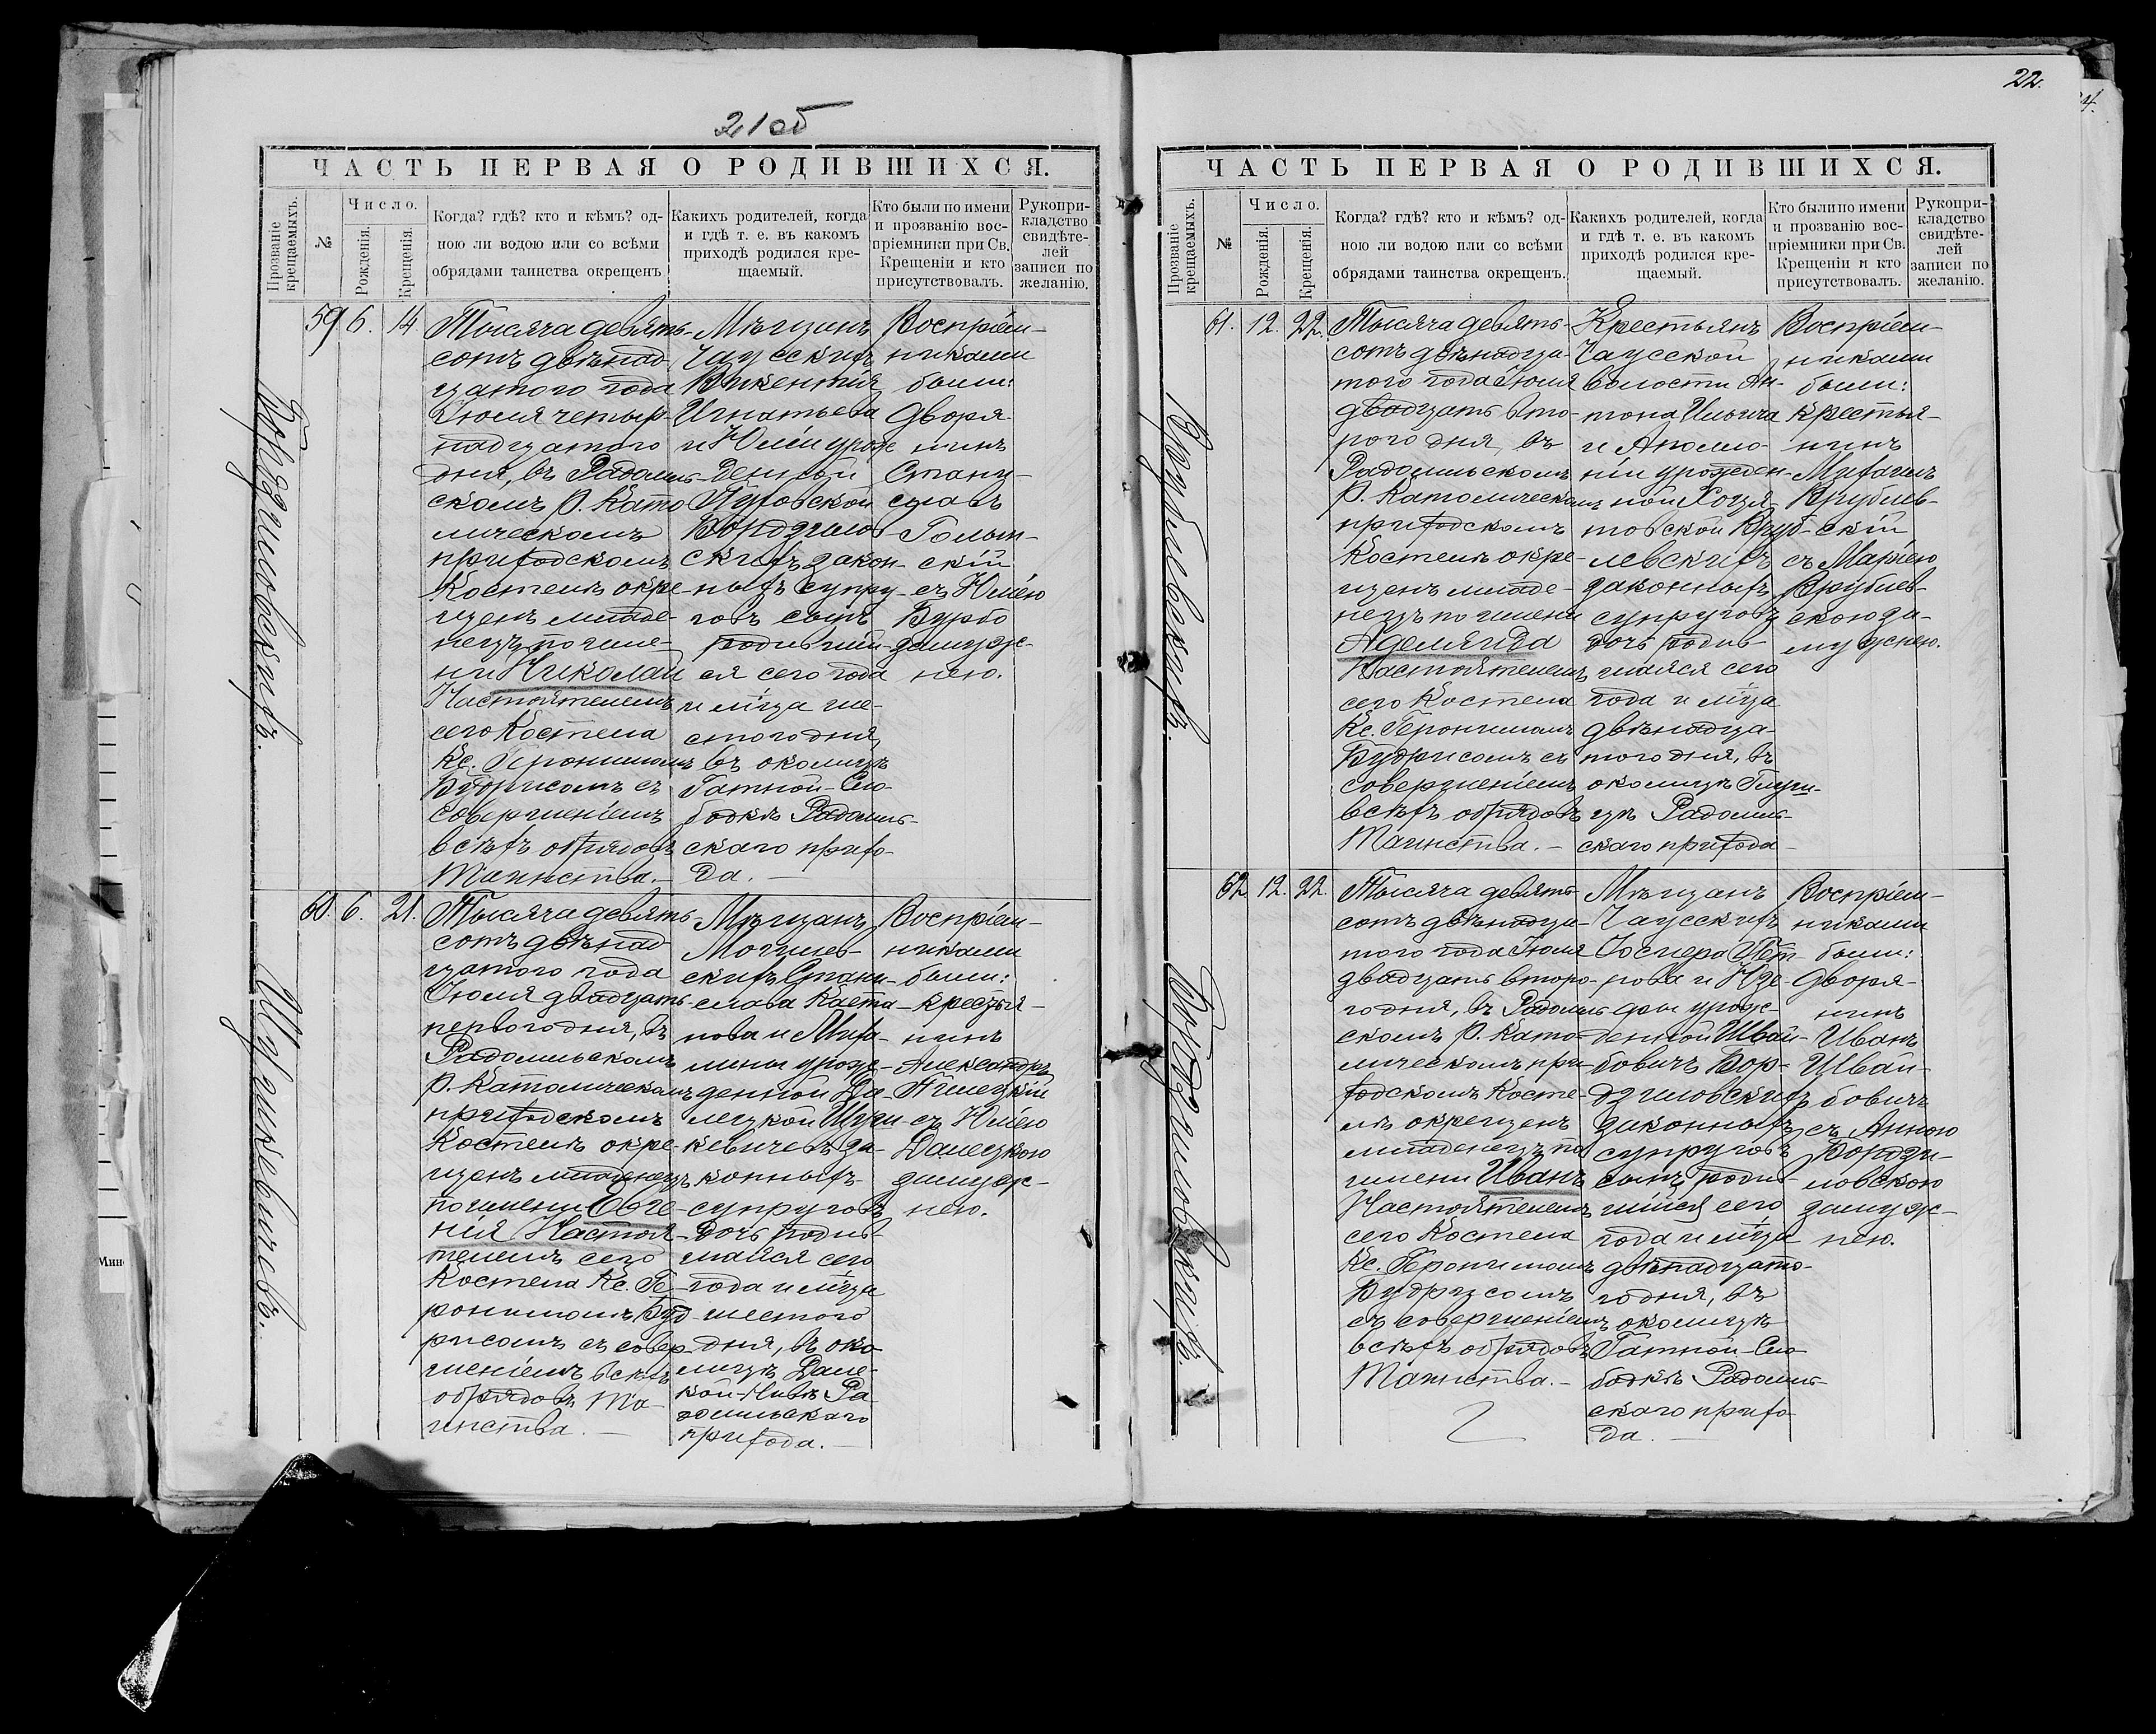 21об
ЧАСТЬ ПЕРВАЯ О РОДИВШИХСЯ.
Прозваніе крещаемыхъ.
№
Число.
Рожденія.
Крещенія.
Когда? гдѣ? кто и кѣмъ? од-
ною ли водою или со всѣми
обрядами таинства окрещенъ
Какихъ родителей, когда
и гдѣ т. е. въ какомъ
приходѣ родился кре-
щаемый.
Кто были по имени
и прозванію вос-
пріемники при Св.
Крещеніи и кто
присутствовалъ.
Рукопри-
кладство
свидѣте-
лей
записи по
желанію.
Бордзиловскихъ.
59 6. 14.
Тысяча девять-
сотъ двѣнад-
цатого года
Іюля четыр-
надцатого
дня, въ Радомль-
скомъ Р. Като-
лическомъ
приходскомъ
Костелѣ окре-
щенъ младе-
нецъ по име-
ни Николай
Настоятелемъ
сего Костела
Кс. Геронимомъ
Будрисомъ съ
совершеніемъ
всѣхъ обрядовъ
Таинства.—
Мѣщанъ
Чаусскихъ
Викентія
Игнатьева
и Юліи урож-
денной
Бордзилов-
скихъ закон-
ныхъ супру-
говъ сынъ
родившій-
ся сего года
и м-ца ше-
стого дня,
въ околицѣ
Гатной-Сло-
бодкѣ Радомль-
скаго прихо-
да.—
Воспріем-
никами
были:
Дворя-
нинъ
Стани-
славъ
Голын-
скій
съ Юліею
Бурбо
замуж-
нею.
60. 6. 21.
Тысяча девять-
сотъ двѣнад-
цатого года
Іюля двадцать
первого дня, въ
Радомльскомъ
Р. Католическомъ
приходскомъ
Костелѣ окре-
щенъ младенецъ
по имени Евге-
нія Настоя-
телемъ сего
Костела Кс. Ге-
ронимомъ Буд-
рисомъ съ совер-
шеніемъ всѣхъ
обрядовъ Та-
инства.—
Мѣщанъ
Могилев-
скихъ Стани-
слава Каета-
нова и Миха-
лины урож-
денной Да-
лецкой
законныхъ
супруговъ
дочь родив-
шаяся сего
года и м-ца
шестого
дня, въ око-
лицѣ Дале-
кой-Нивѣ Ра-
домльскаго
прихода.—
Воспріем-
никами
были:
крестья-
нинъ
Александръ
съ Юліею
Далецкою
замуж-
нею.
22.
ЧАСТЬ ПЕРВАЯ О РОДИВШИХСЯ.
Прозваніе крещаемыхъ.
№
Число.
Рожденія.
Крещенія.
Когда? гдѣ? кто и кѣмъ? од-
ною ли водою или со всѣми
обрядами таинства окрещенъ.
Какихъ родителей, когда
и гдѣ т. е. въ какомъ
приходѣ родился кре-
щаемый.
Кто были по имени
и прозванію вос-
пріемники при Св.
Крещеніи и кто
присутствовалъ.
Рукопри-
кладство
свидѣте-
лей
записи по
желанію.
Врублевскихъ.
61. 12. 22.
Тысяча девять-
сотъ двѣнадца-
того года Іюля
двадцать вто-
рого дня, въ
Радомльскомъ
Р. Католическомъ
приходскомъ
Костелѣ окре-
щенъ младе-
нецъ по имени
Аделяида
Настоятелемъ
сего Костела
Кс. Геронимомъ
Будрисомъ съ
совершеніемъ
всѣхъ обрядовъ
Таинства.—
Крестьянъ
Чаусской
волости Ан-
тона Ильича
и Аполло-
ніи урожден-
ной Хоця-
товской Вруб-
левскихъ
законныхъ
супруговъ
дочь родив-
шаяся сего
года и м-ца
двѣнадца-
того дня, въ
околицѣ
Радомль-
скаго прихода—
Воспріем-
никами
были:
крестья-
нинъ
Михаилъ
Врублев-
скій
съ Маріею
Врублев-
скою за-
мужнею.
Бордзиловскихъ.
62 12. 22.
Тысяча девять-
сотъ двѣнадца-
того года Іюля
двадцать второ-
го дня, въ Радомль-
скомъ Р. Като-
лическомъ при-
ходскомъ Косте-
лѣ окрещенъ
младенецъ по
имени Иванъ
Настоятелемъ
сего Костела
Кс. Геронимомъ
Будрисомъ
съ совершеніемъ
всѣхъ обрядовъ
Таинства.—
Мѣщанъ
Чаусскихъ
Іосифа Пет-
рова и
урож-
денной Швай-
бовичъ Бор-
дзиловскихъ
законныхъ
супруговъ
сынъ родив-
шійся сего
года и м-ца
двѣнадцато-
го дня, въ
околицѣ
Гатной-Сло-
бодкѣ Радомль-
скаго прихо-
да.—
Воспріем-
никами
были:
Дворя-
нинъ
Иванъ
Швай-
бовичъ
съ Анною
Бордзи-
ловскою
замуж-
нею.